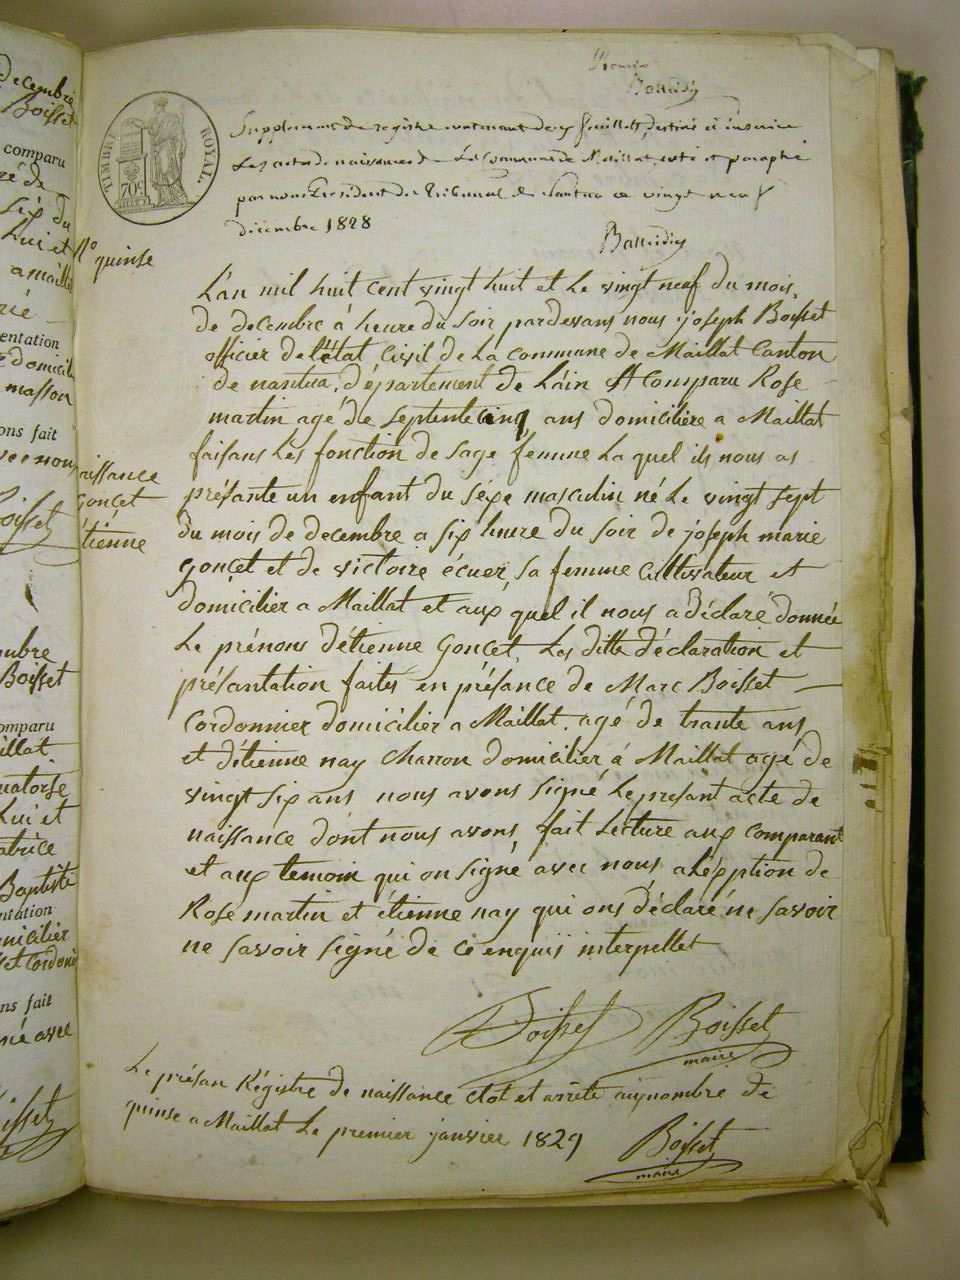 Premier
TIMBRE ROYAL.
70c
Supplement de registre contenant deux feuillets, destiné à inscrire
Les actes de naissances de La Commune de Maillat, coté et paraphé
par nous Président du Tribunal de Nantua ce vingt neuf
décembre 1828
N° quinse
L'an mil huit cent vingt huit et le vingt neuf du mois,
de decembre à heure du soir pardevans nous joseph Boisset
officier de l'état Civil de La commune de Maillat Canton
de nantua, département de L'ain A Comparu Rose
martin agé de septente cinq ans domicilière a Maillat
faisans Les fonction de sage femme La quel ils nous as
présante un enfant du séxe masculin né Le vingt sept
du mois de decembre a six heure du soir de joseph marie
gonçet et de victoire écuer, sa femme Cultivateur et
domicilier a Maillat et aux quel il nous a déclaré donnée
Le prénons détienne gonçet, Les ditte déclaration et
présantation faites en présance de Marc Boisset
Cordonnier domicilier a Maillat, agé de trante ans
et détienne nay charron domicilier à Maillat agé de
vingt six ans nous avons signé Le présant acte de
naissance dont nous avons, fait Lecture aux comparant
et aux temoin qui on signé avec nous a L'éxption de
Rose martin et étienne nay qui ons déclaré ne savoir
ne savoir signé de ce enquis interpellet
aissance
gonçet
étienne
Boisset Boisset
maire
Le présan Régistre de naissance clot et arrêté au nombre de
quinse a Maillat Le premier janvier 1829
Boisset
maire
decembre
Boisset
comparu
six du
Lui et
a maillat
entation
domicili
masson
ons fait
vec nous
oisset
embre
Boisset
omparu
aillat
uatorse
Lui et
atrice
Baptiste
ntation
micilier
set cordoni
ns fait
né avec
oisset